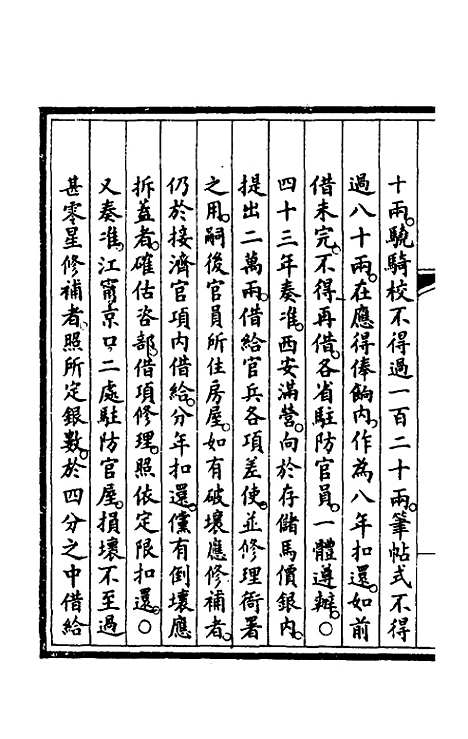 十兩。驍騎校不得過一百二十兩。筆帖式不得
過八十兩。在應得俸餉內。作為八年扣還。如前
借未完。不得再借。各省駐防官員。一體遵辦。○
四十三年奏准。西安滿營。向於存儲馬價銀內。
提出二萬兩。借給官兵各項差使。並修理衙署
之用。嗣後官員所住房屋。如有破壞應修補者。
仍於接濟官項內借給。分年扣還。儻有倒壞應
拆蓋者。確估咨部。借項修理。照依定限扣還。○
又奏准。江甯京口二處駐防官屋。損壞不至過
甚零星修補者。照所定銀數。於四分之中借給